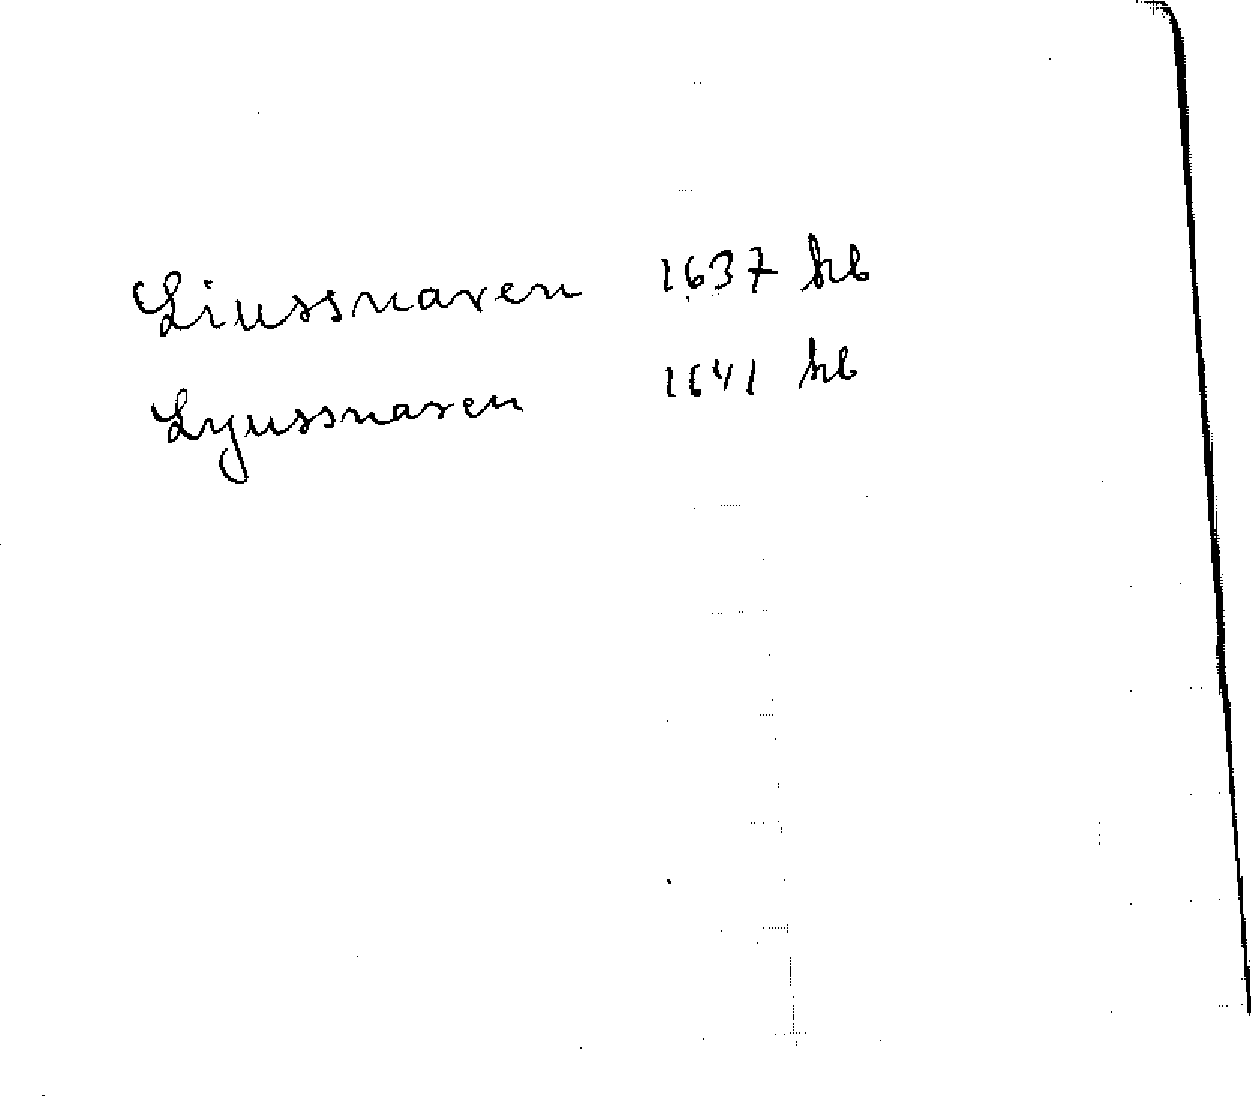 Liussnaren 1637 hb
Lyussnaren 1641 hb